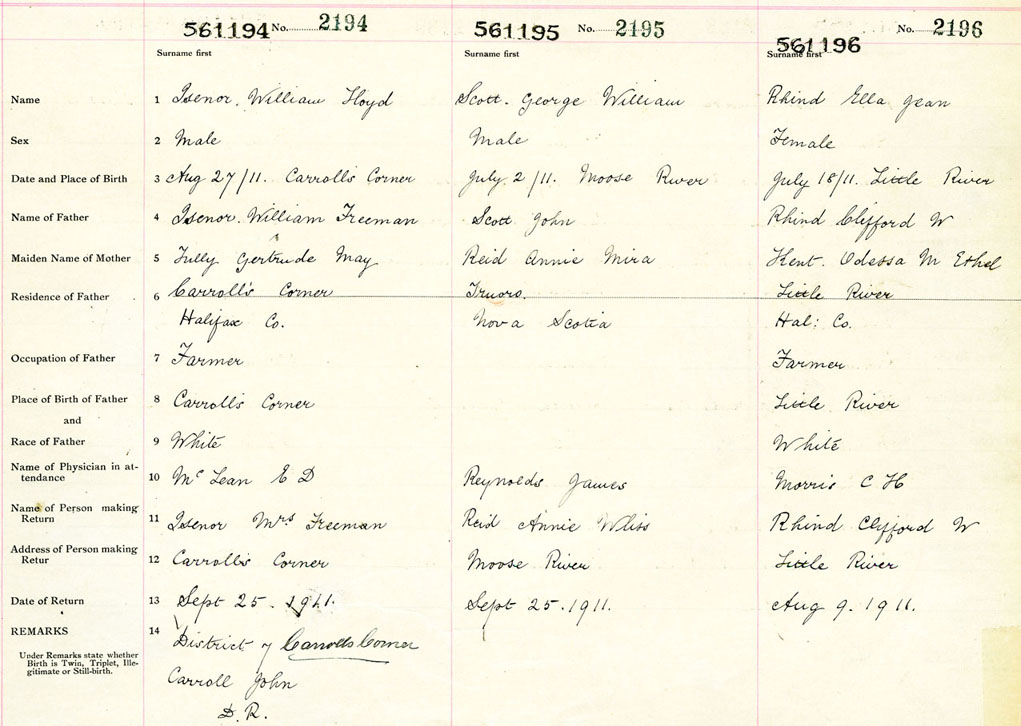 561194 No. 2194 561195 No. 2195 561196 No. 2196
Surname first Surname first Surname first
Name 1 Isenor. William Lloyd Scott. George William Rhind Ella Jean
Sex 2 Male Male Female
Date and Place of Birth 3 Aug 27/11. Carroll's Corner July 2/11. Moose River July 18/11. Little River
Name of Father 4 Isenor. William Freeman Scott John Rhind Clifford W
Maiden Name of Mother 5 Tully Gertrude May Reid Annie Mira Kent. Odessa M Ethel
Residence of Father 6 Carroll's Corner Truro. Little River
Halifax Co. Nova Scotia Hal: Co.
Occupation of Father 7 Farmer Farmer
Place of Birth of Father 8 Carroll's Corner Little River
and
Race of Father 9 White White
Name of Physician in at-
tendance 10 McLean E D Reynolds James Morris C H
Name of Person making
Return 11 Isenor Mrs Freeman Reid Annie Rhind Clifford W
Address of Person making
Retur 12 Carroll's Corner Moose River Little River
Date of Return 13 Sept 25. 1911. Sept 25. 1911. Aug 9. 1911.
REMARKS 14 District of Carrolls Corner
Under Remarks state whether
Birth is Twin, Triplet, Ille-
gitimate or Still-birth.
Carroll John
D. R.